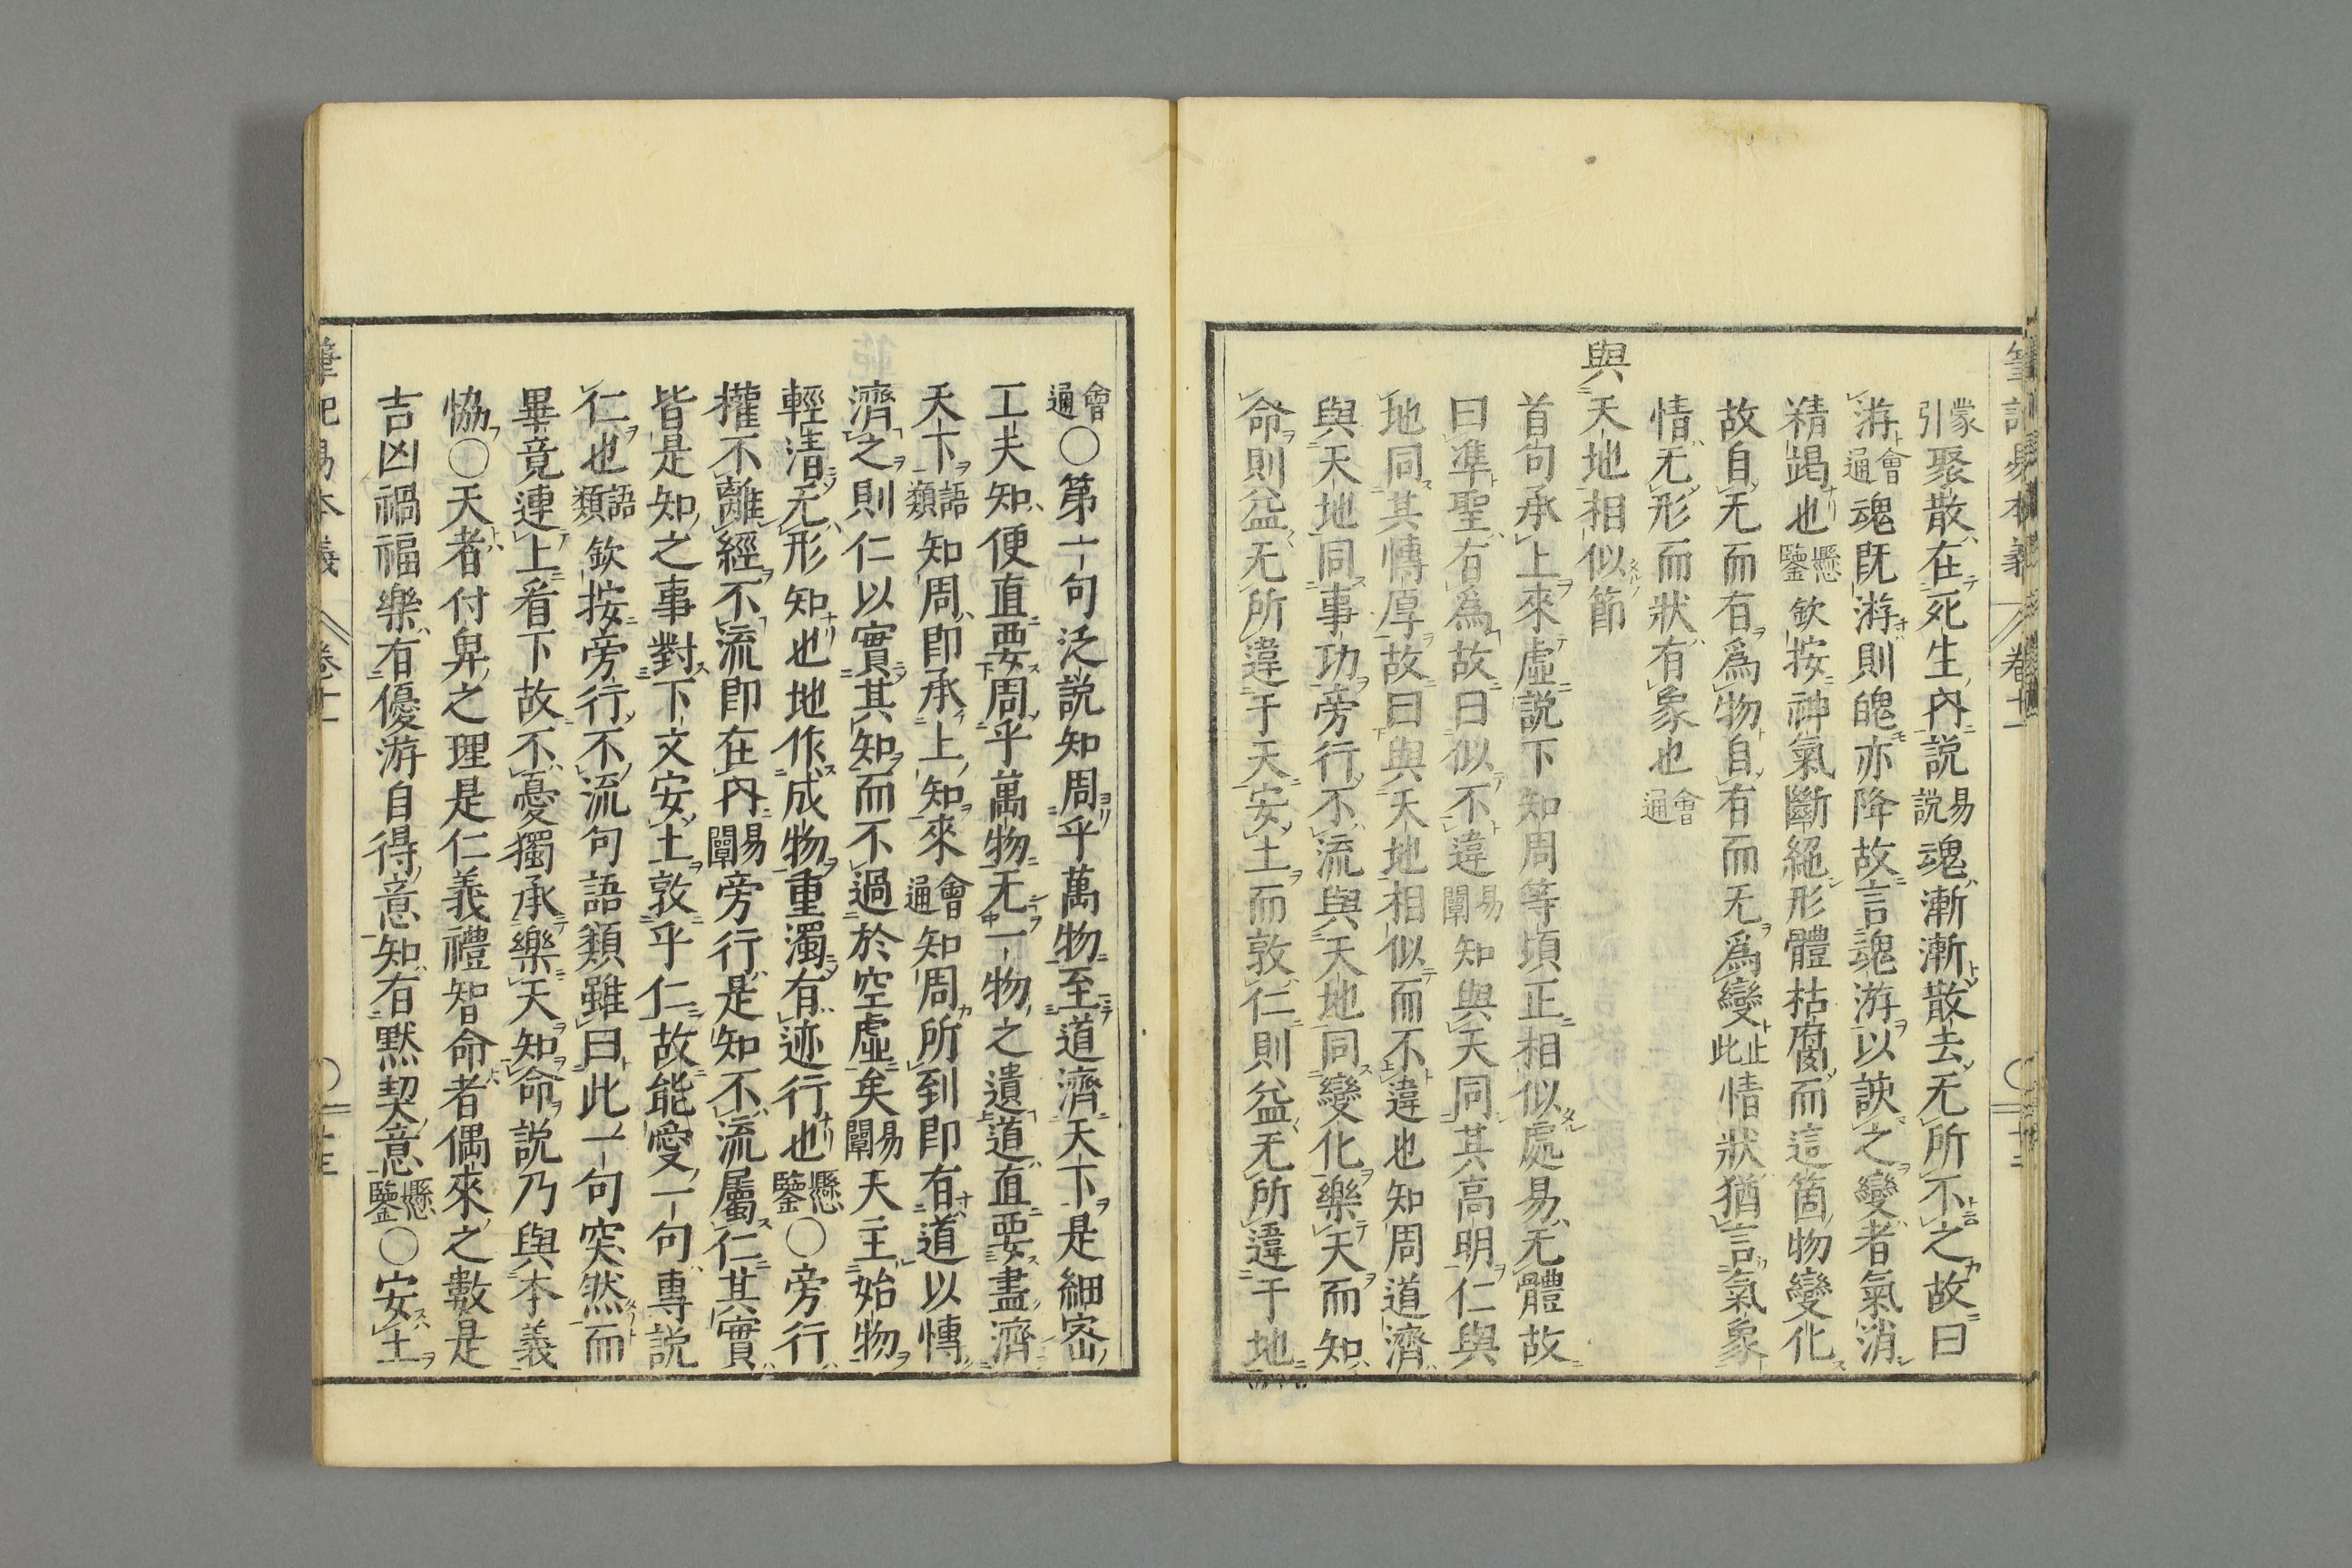 筆記易本義 卷十一 ○ 十二
蒙引聚散在死生內説易説魂漸漸散去无所不之故曰
游會通魂既游則魄亦降故言魂游以該之變者氣消
精竭也懸鑒欽按神氣斷絕形體枯腐而這箇物變化
故自无而有爲物自有而无爲變止此情狀猶言氣象
情无形而狀有象也會通
與天地相似節
首句承上來虛説下知周等項正相似處易无體故
曰準聖有為故曰似不違易闡知與天同其高明仁與
地同其愽厚故曰與天地相似而不違也知周道濟
與天地同事功旁行不流與天地同變化樂天而知
命則益无所違于天安土而敦仁則益无所違于地
會通○第一句泛説知周乎萬物至道濟天下是細密
工夫知便直要周乎萬物无一物之遺道直要盡濟
天下語類知周即承上知來會通知周所到即有道以愽
濟之則仁以實其知而不過於空虛矣易闡天主始物
輕清无形知也地作成物重濁有迹行也懸鑒○旁行
權不離經不流即在內易闡旁行是知不流屬仁其實
皆是知之事對下文安土敦乎仁故能愛一句專説
仁也語類欽按旁行不流句語類雖曰此一句突然而
畢竟連上看下故不憂獨承樂天知命説乃與本義
恊○天者付畀之理是仁義禮智命者偶來之數是
吉凶禍福樂有優游自得意知有默契意懸鑒○安土
筆記易本義 卷十一 ○ 十三